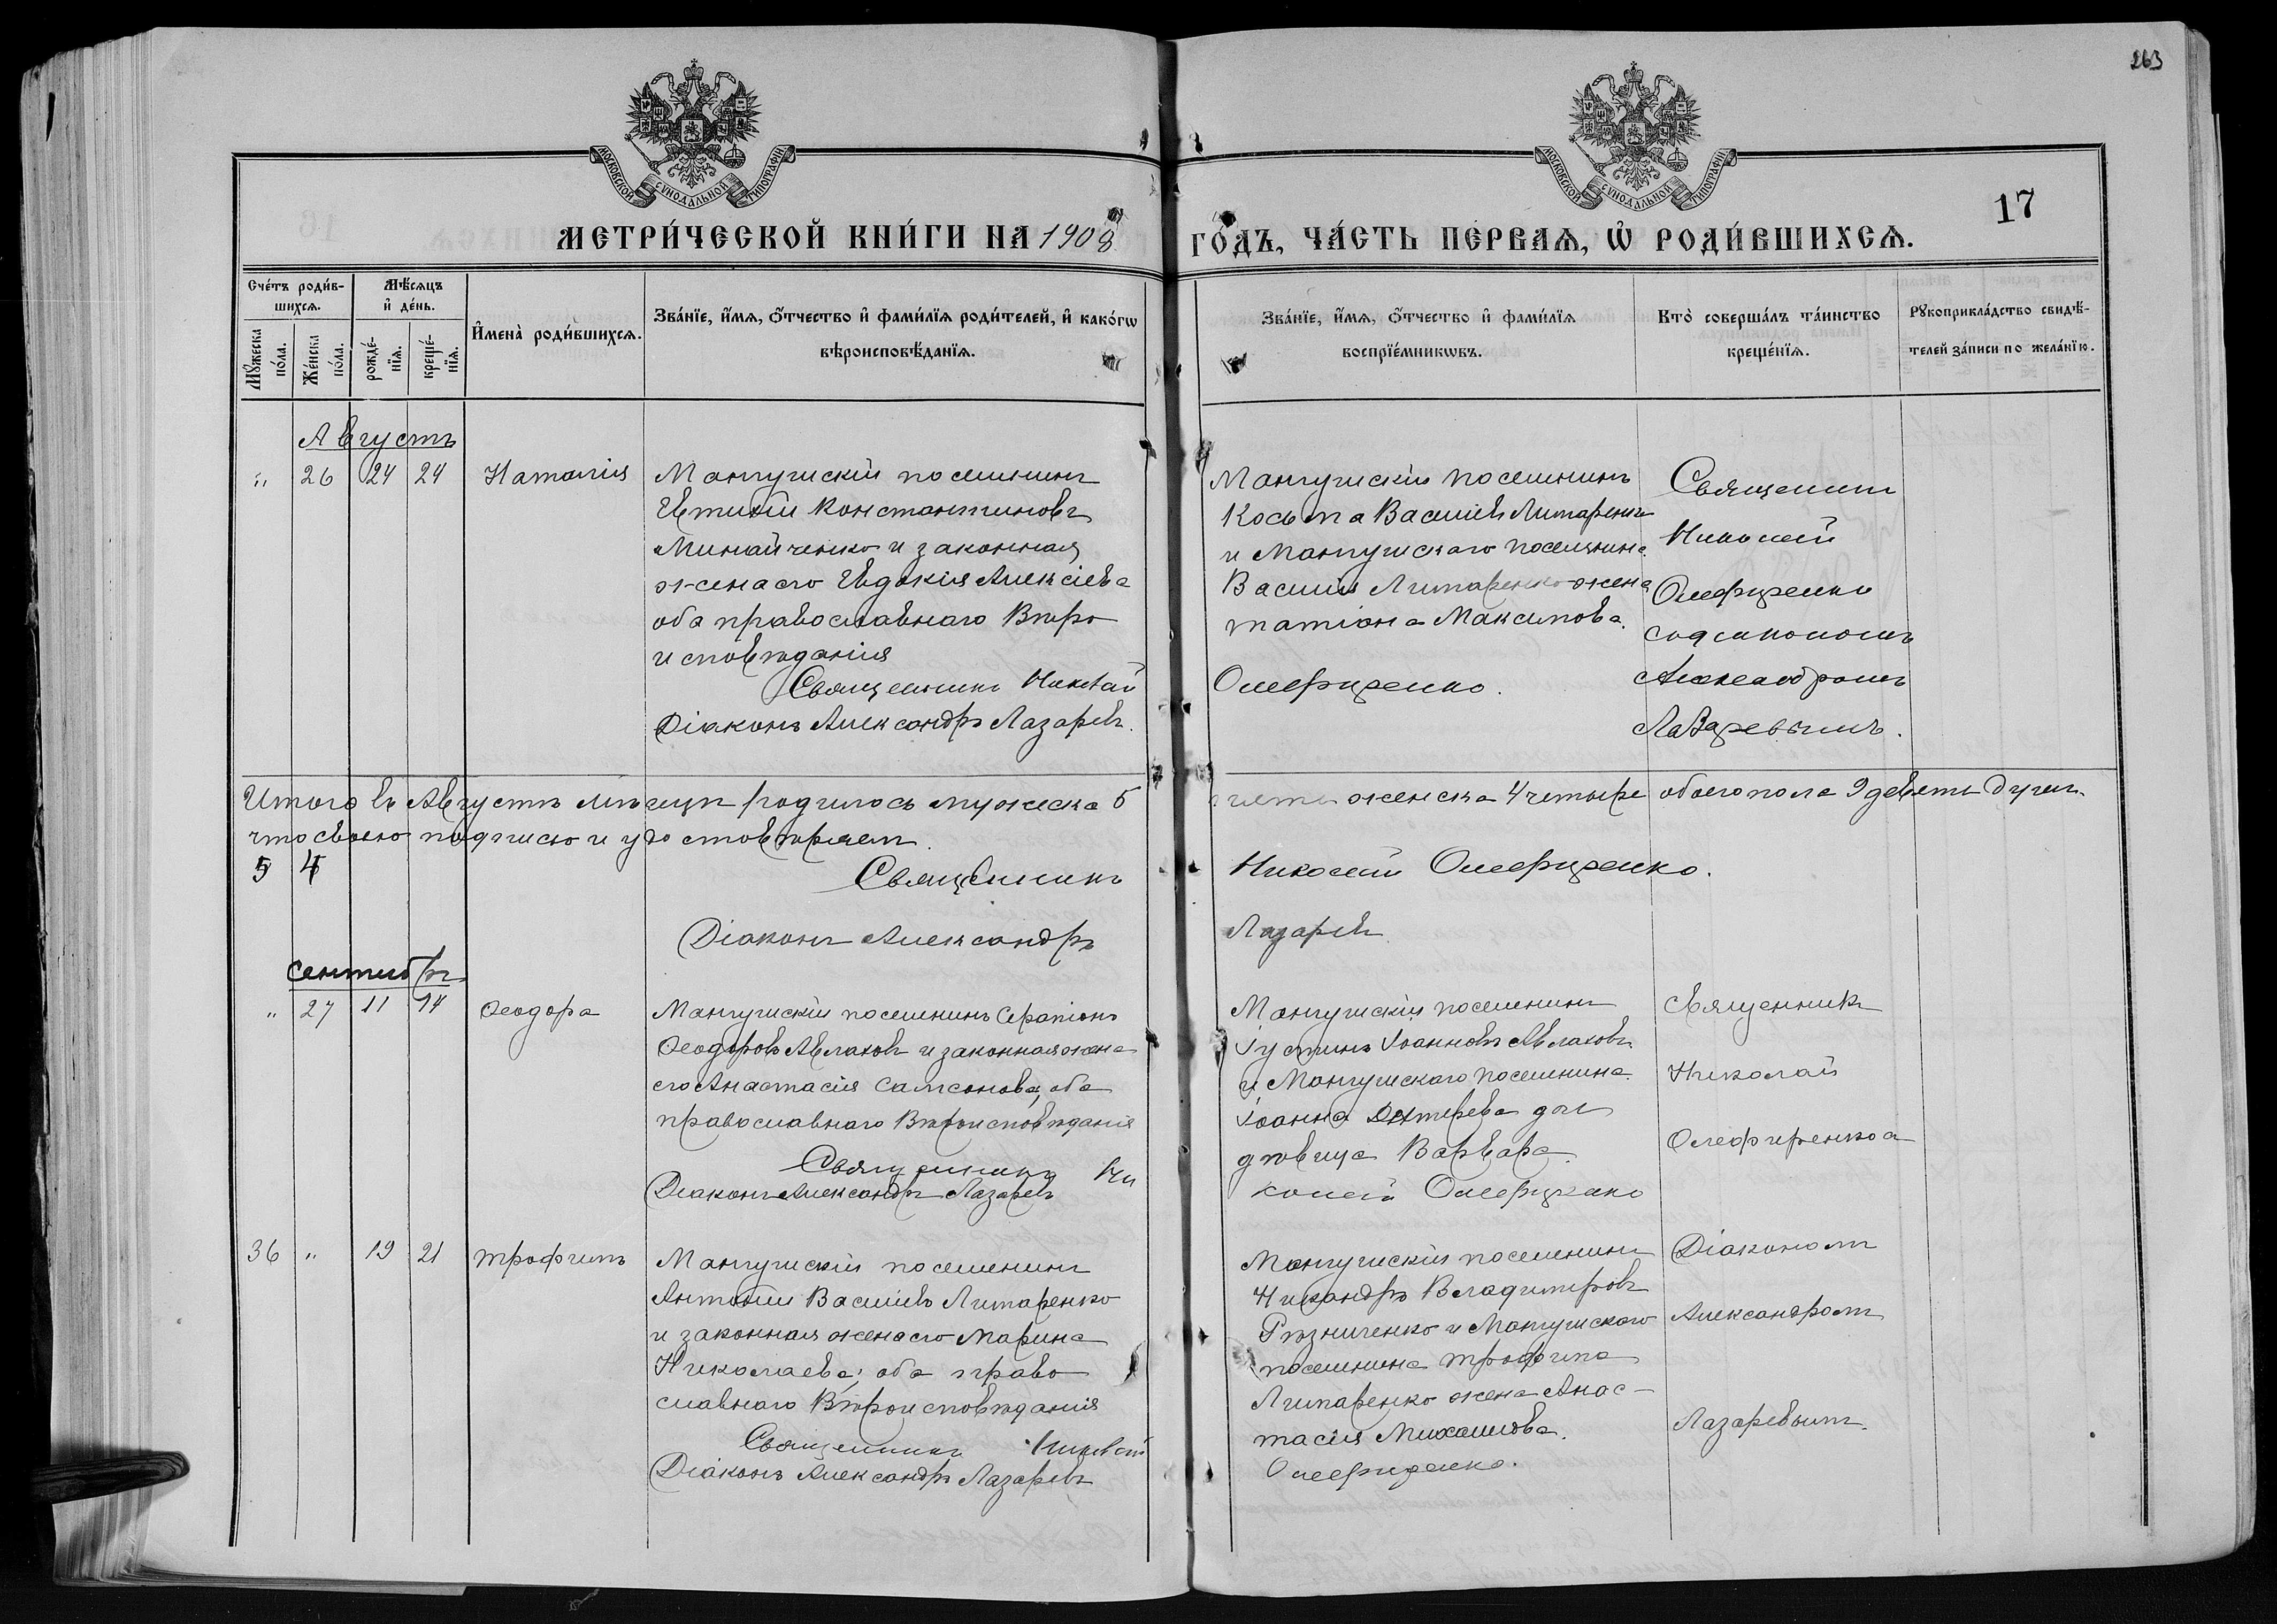 263
МОСКОВСКОЙ СУНОДАЛЬНОЙ ТИПОГРАФІИ
МОСКОВСКОЙ СУНОДАЛЬНОЙ ТИПОГРАФІИ
17
МЕТРИ́ЧЕСКОЙ КНИ́ГИ НА 1908
ГО́ДЪ, ЧА́СТЬ ПЕ́РВАЯ, Ѡ҆ РОДИ́ВШИХСЯ.
Сче́тъ роди́вшихся.
Мѣ́сяцъ и҆ де́нь.
Мꙋ́жеска по́ла.
Же́нска по́ла.
рожде́нїя.
креще́нїя.
И҆мена̀ роди́вшихся.
Зва́нїе, и҆́мя, ѻ҆́тчество и҆ фами́лїя роди́телей, и҆ како́гѡ
вѣроисповѣ́данїя.
Зва́нїе, и҆́мя, ѻ҆́тчество и҆ фами́лїя
воспрїе́мникѡвъ.
Кто̀ соверша́лъ та́инство
креще́нїя.
Рꙋкоприкла́дство свидѣ́-
телей за́писи по жела́нїю.
Августъ
" 26 24 24 Наталія
Мангушскій поселянинъ
Евтихій Константиновъ
Минайченко и законная
жена его Евдокія Алексіева
оба православнаго Вѣро
исповѣданія
Священникъ Николай
Діаконъ Александръ Лазаревъ.
Мангушскій поселянинъ
Косьма Василіевъ Литаренко
и Мангушскаго поселянина
Василія Литаренко жена
Татіана Максимова.
Олефиренко.
Священникъ
Николай
Олефиренко
съ діакономъ
Александромъ
Лазаревымъ.
Итого въ Августѣ мѣсяцѣ родилось мужеска 5
пять женска 4 четыре обоего пола 9 девять душъ.
что своею подписью и удостовѣряемъ.
5 4
Священникъ
Николай Олефиренко.
Діаконъ Александръ
Лазаревъ
Сентябрь
" 27 11 14 Ѳеодора
Мангушскій поселянинъ Серапіонъ
Ѳеодоровъ Авлаховъ и законная жена
его Анастасія Самсонова, оба
православнаго Вѣроисповѣданія
Священникъ Ни
Діаконъ Александръ Лазаревъ
Мангушскій поселянинъ
Іустинъ Іоанновъ Авлаховъ
и Мангушскаго поселянина
Іоанна
дѣвица Варвара.
колай Олефиренко
Священникъ
Николай
Олефиренко
36 " 19 21 Трофимъ
Мангушскій поселянинъ
Антоній Василіевъ Литаренко
и законная жена его Марина
Николаева; оба право
славнаго Вѣроисповѣданія
Священникъ Николай
Діаконъ Александръ Лазаревъ
Мангушскій поселянинъ
Никандръ Владимировъ
Рѣзниченко и Мангушскаго
поселянина Трофима
Литаренко жена Анас-
тасія Михаилова.
Олефиренко.
Діакономъ
Александромъ
Лазаревымъ.